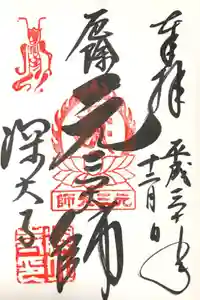 奉拝
平成三十年
十二月 日
厄除
元三大師
深大寺
元三大師